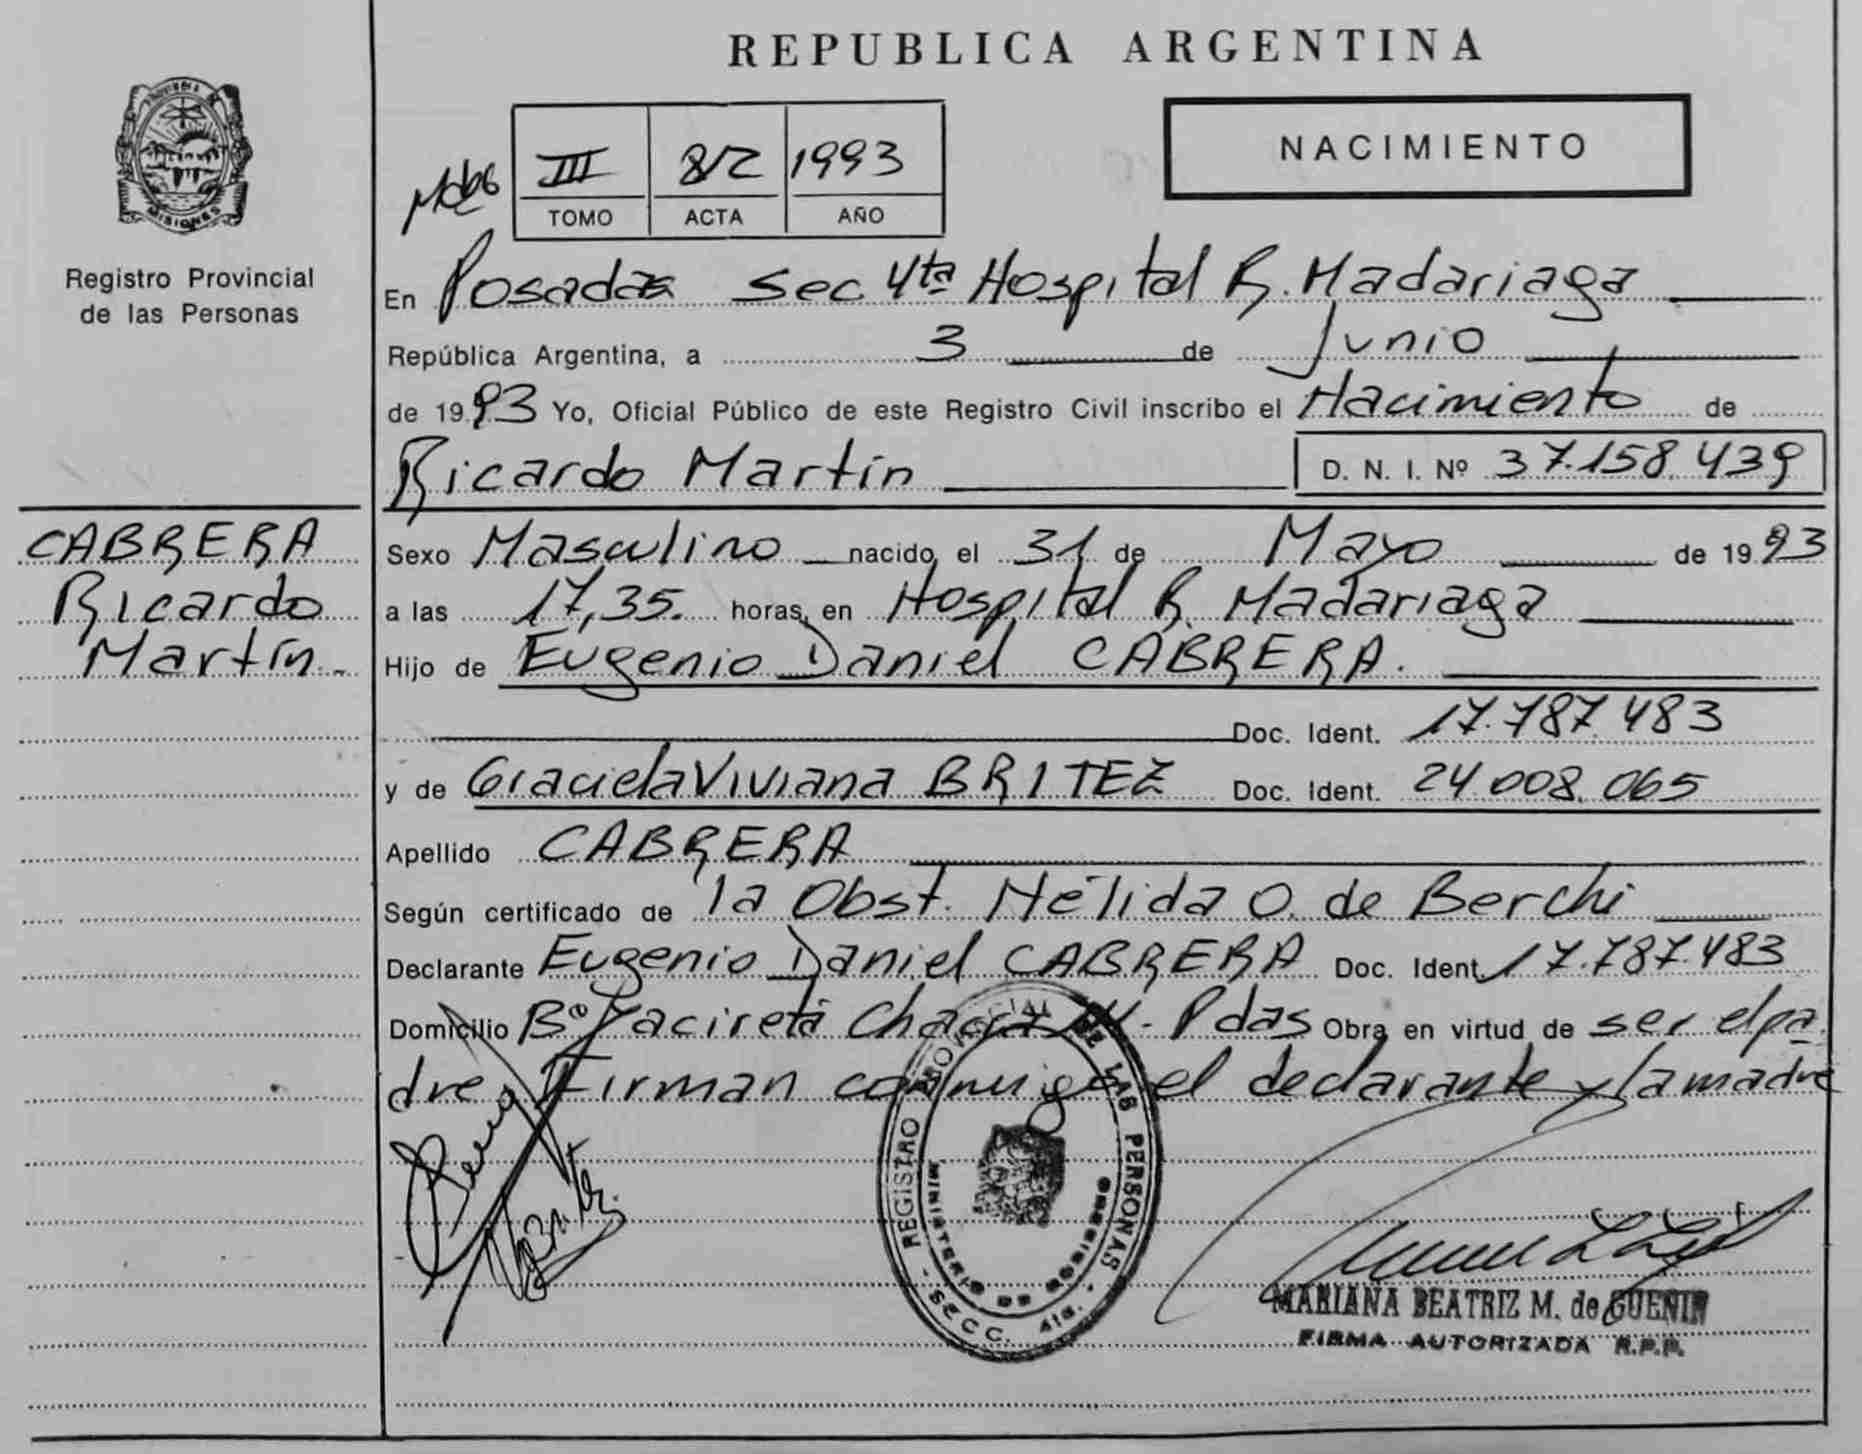 REPUBLICA ARGENTINA
MISIONES
Registro Provincial
de las Personas
NACIMIENTO
III 812 1993
TOMO ACTA AÑO
En Posadas Sec. 4ta Hospital R. Madariaga
República Argentina, a 3 de Junio
de 1993 Yo, Oficial Público de este Registro Civil inscribo el Nacimiento de
Ricardo Martín D. N. I. Nº 37.158.439
CABRERA
Ricardo
Martín.-
Sexo Masculino nacido el 31 de Mayo de 1993
a las 17,35. horas, en Hospital R. Madariaga
Hijo de Eugenio Daniel CABRERA.
Doc. Ident. 17.787.483
y de Graciela Viviana BRITEZ Doc. Ident. 24.008.065
Apellido CABRERA
Según certificado de la Obst. Nélida O. de Berchi
Declarante Eugenio Daniel CABRERA Doc. Ident. 17.787.483
Domicilio Bº Yacireta Chacra - Pdas Obra en virtud de ser el pa
dre. Firman conmigo el declarante y la madre
REGISTRO PROVINCIAL DE LAS PERSONAS
MINISTERIO DE GOBIERNO
- SECC. 4ta. -
MARIANA BEATRIZ M. de GUENIN
FIRMA AUTORIZADA R.P.P.